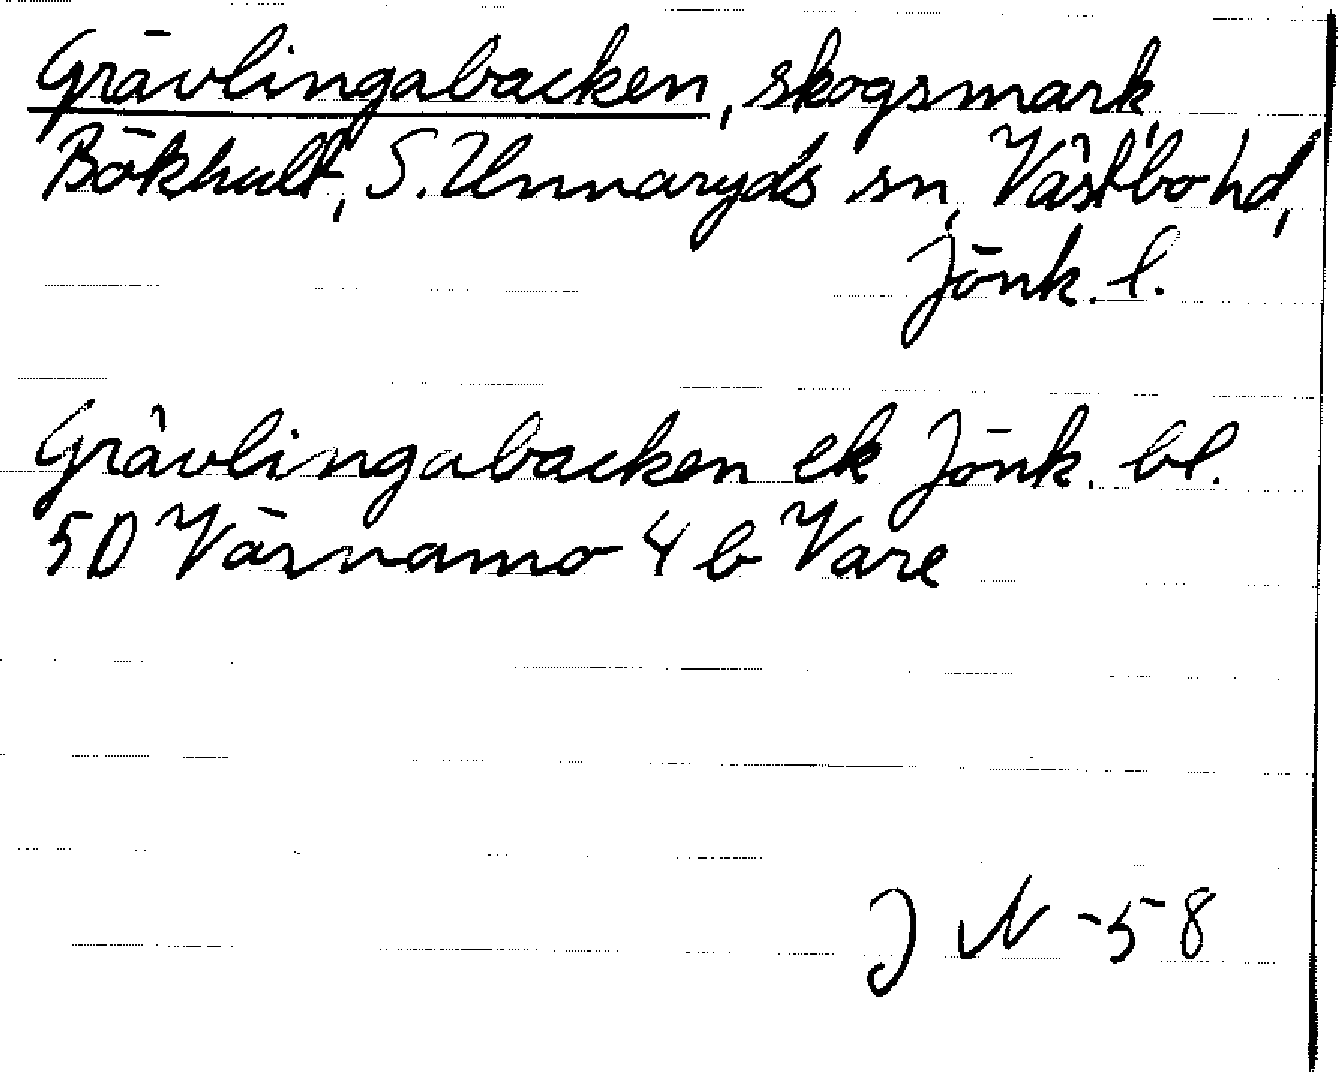 Grävlingabacken, skogsmark,
Bökhult, S. Unnaryds sn, Västbo hd,
Jönk. l.
Grävlingabacken ek Jönk. bl.
5D Värnamo 4 b Vare
J N -58